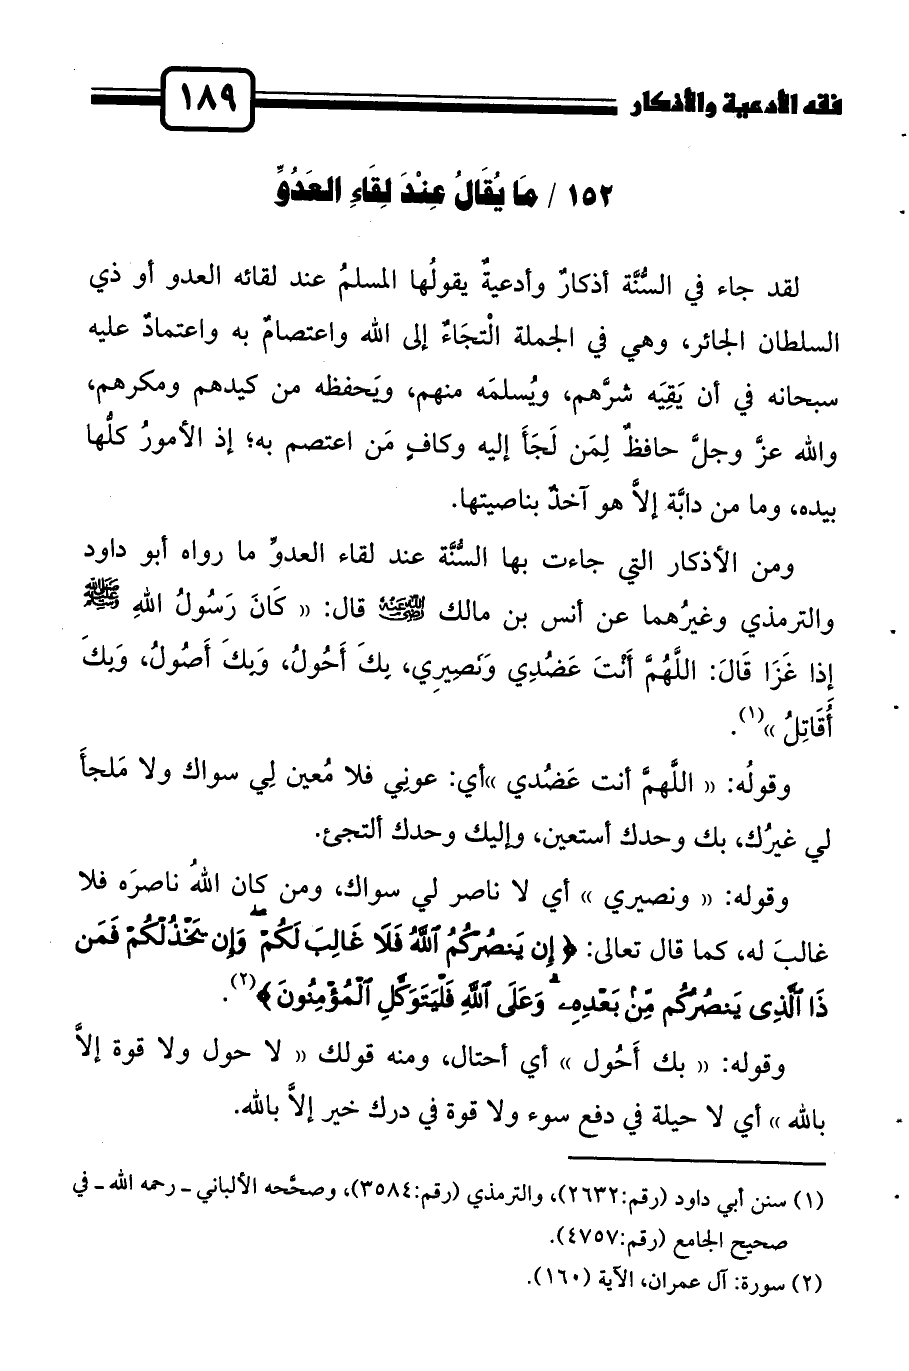 فقه الأدعية والأذكار
١٨٩
١٥٢ / مَا يُقَالُ عِنْدَ لِقَاءِ العَدُوِّ
لقد جاء في السُّنَّة أذكارٌ وأدعيةٌ يقولُها المسلمُ عند لقائه العدو أو ذي
السلطان الجائر، وهي في الجملة الْتجَاءٌ إلى الله واعتصامٌ به واعتمادٌ عليه
سبحانه في أن يَقِيَه شرَّهم، ويُسلمَه منهم، ويَحفظه من كيدهم ومكرهم،
والله عزَّ وجلَّ حافظٌ لِمَن لَجَأَ إليه وكافٍ مَن اعتصم به؛ إذ الأمورُ كلُّها
بيده، وما من دابَّة إلاَّ هو آخذٌ بناصيتها.
ومن الأذكار التي جاءت بها السُّنَّة عند لقاء العدوِّ ما رواه أبو داود
والترمذي وغيرُهما عن أنس بن مالك رضي الله عنه قال: « كَانَ رَسُولُ اللهِ ﷺ
إذا غَزَا قَالَ: اللَّهُمَّ أَنْتَ عَضُدِي وَنَصِيرِي، بِكَ أَحُولُ، وَبِكَ أَصُولُ، وَبِكَ
أُقَاتِلُ »(١).
وقولُه: « اللَّهمَّ أنت عَضُدي »أي: عونِي فلا مُعين لِي سواك ولا مَلجأَ
لي غيرُك، بك وحدك أستعين، وإليك وحدك ألتجئ.
وقوله: « ونصيري » أي لا ناصر لي سواك، ومن كان اللهُ ناصرَه فلا
غالبَ له، كما قال تعالى: ﴿ إِن يَنصُرْكُمُ ٱللَّهُ فَلَا غَالِبَ لَكُمْ ۖ وَإِن يَخْذُلْكُمْ فَمَن
ذَا ٱلَّذِى يَنصُرُكُم مِّنۢ بَعْدِهِۦ ۗ وَعَلَى ٱللَّهِ فَلْيَتَوَكَّلِ ٱلْمُؤْمِنُونَ﴾(٢).
وقوله: « بك أَحُول » أي أحتال، ومنه قولك « لا حول ولا قوة إلاَّ
بالله » أي لا حيلة في دفع سوء ولا قوة في درك خير إلاَّ بالله.
(١) سنن أبي داود (رقم:٢٦٣٢)، والترمذي (رقم:٣٥٨٤)، وصحَّحه الألباني ـ رحمه الله ـ في
صحيح الجامع (رقم:٤٧٥٧).
(٢) سورة: آل عمران، الآية (١٦٠).